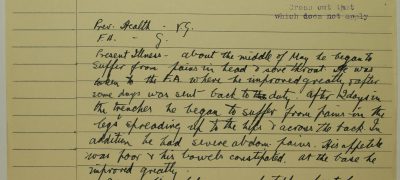 Cross out that
which does not apply
Prev. Health - V.G.
F.H. - G.
Present Illness - about the middle of May he began to
suffer from pains in head & sore throat. He was
to the F.A. where he improved greatly & after
some days was sent back to duty. After 12 days in
the trenches he began to suffer from pains in the
legs spreading up to the hips & across the back. In
addition he had severe abdom. pains. His appetite
was poor & his bowels constipated, at the base he
improved greatly.